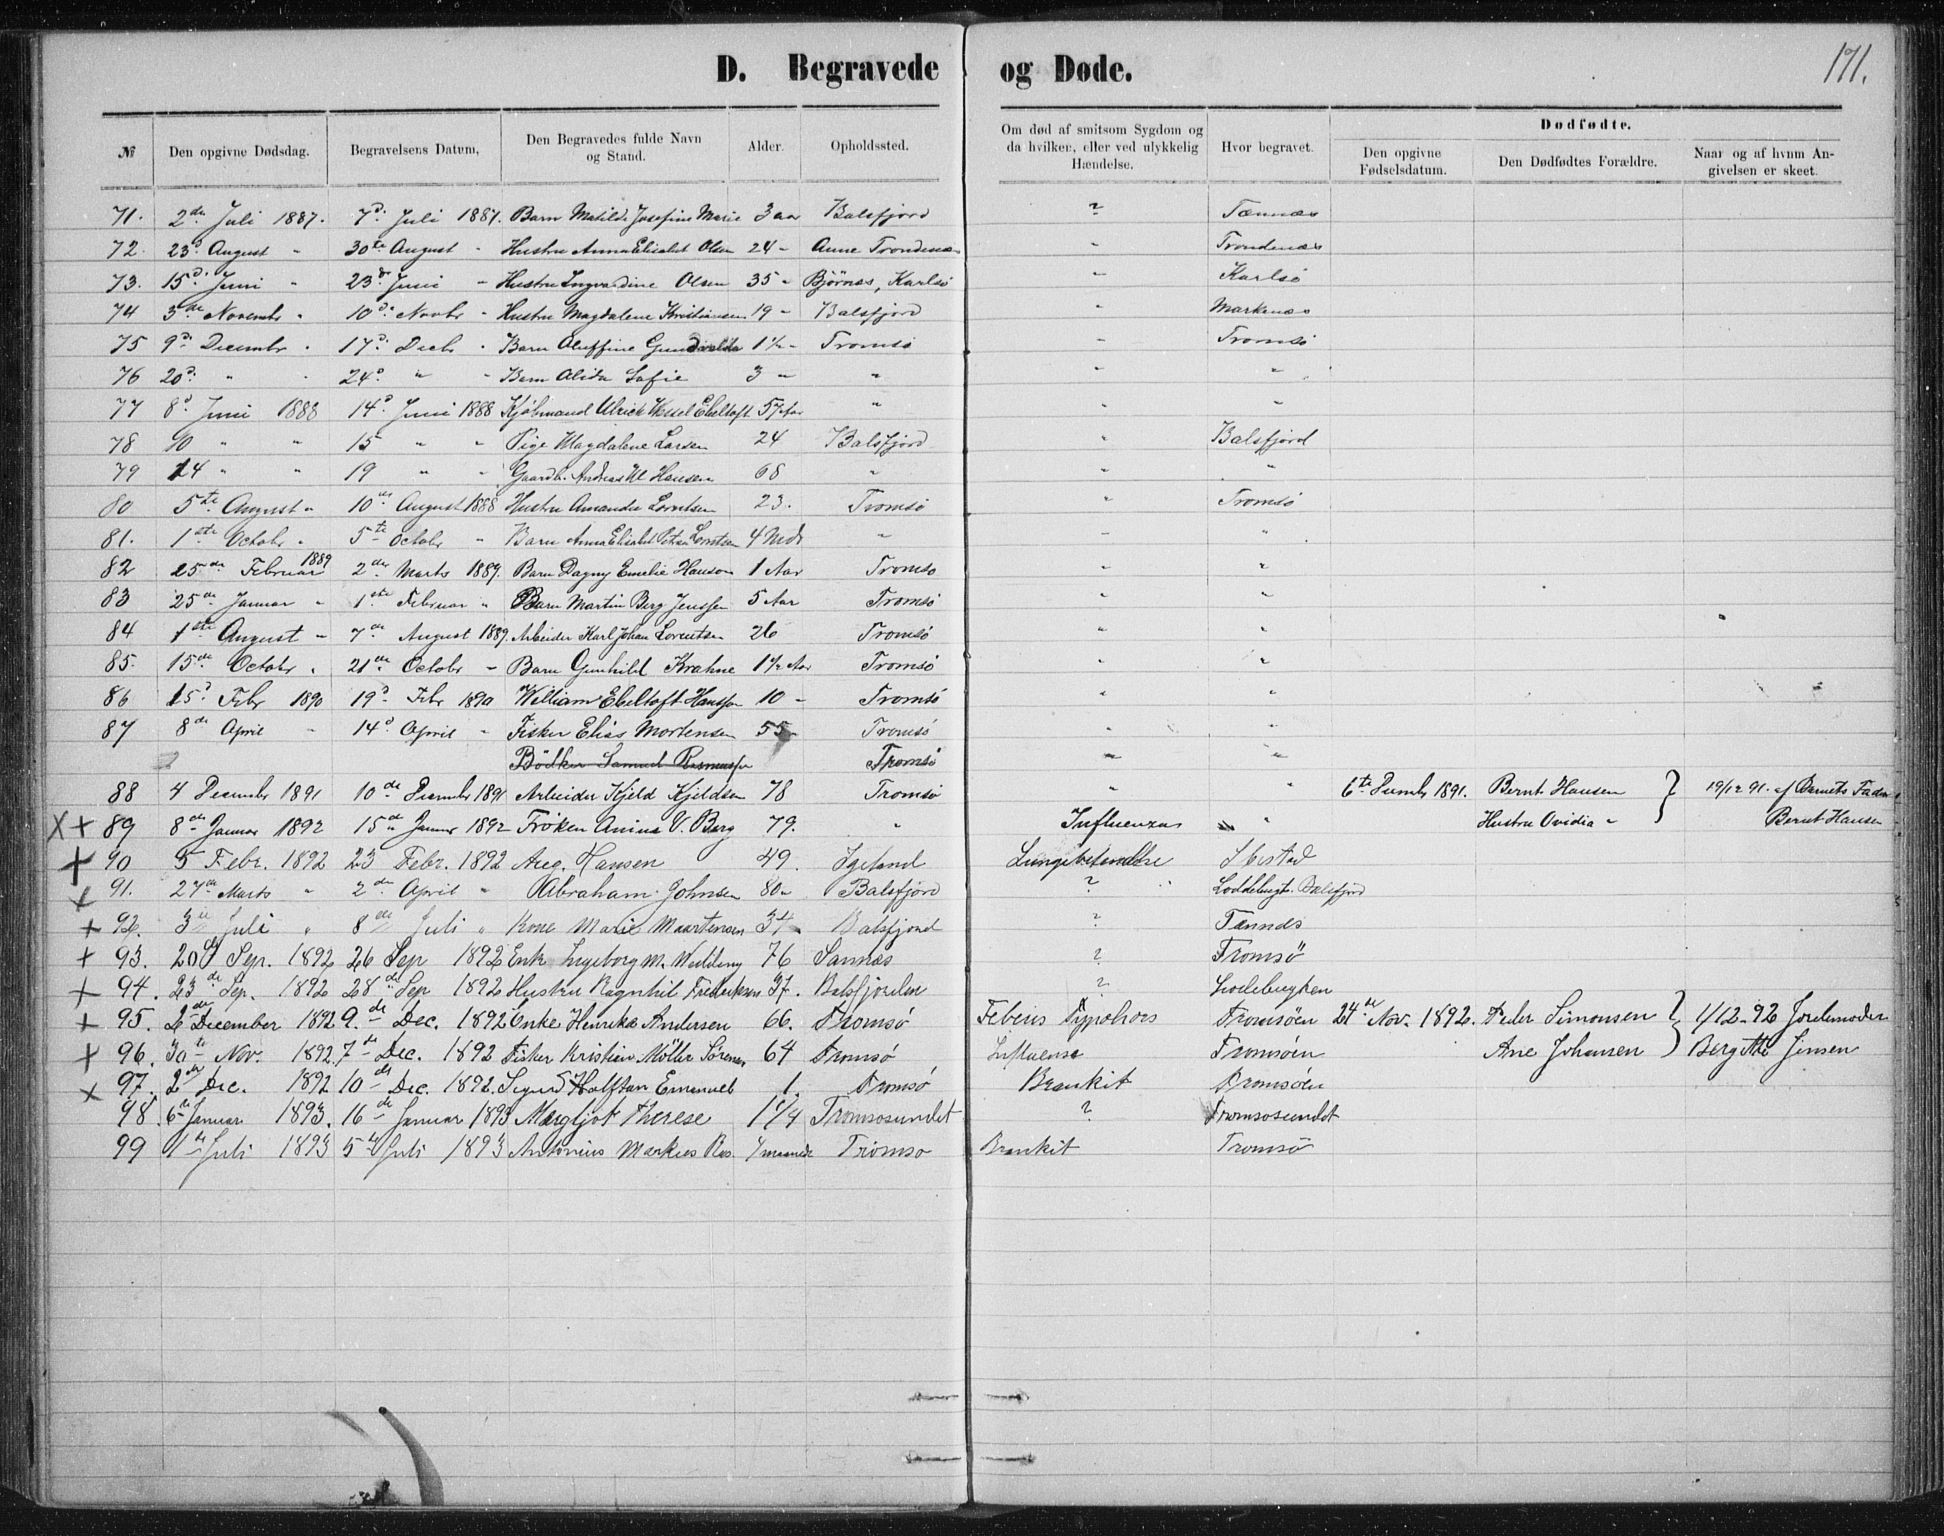 171.
D. Begravede og Døde.
№ Den opgivne Dødsdag. Begravelsens Datum, Den Begravedes fulde Navn og Stand. Alder. Opholdssted. Om død af smitsom Sygdom og da hvilken, eller ved ulykkelig Hændelse. Hvor begravet. Dødfødte. Den opgivne Fødselsdatum. Den Dødfødtes Forældre. Naar og af hvem Angivelsen er skeet.
71. 2de Juli 1887. 7d. Juli 1887. Barn Matilde Josefine Marie 3 aar Balsfjord ? Tennæs
72. 23d. August " 30te August " Hustru Anna Elisabet Olsen 24 " Trondenæs " Trondenæs
73. 15d. Juni " 23de Juni " Hustru Ingvardine Olsen 35 " Bjørnæs, Karlsø " Karlsø
74 3de Novembr " 10d. Novbr " Hustru Magdalene Kristiansen 19 " Balsfjord " Markenæs
75 9d. Decembr " 17d. Decbr " Barn Oluffine 1½ " Tromsø " Tromsø
76 20d. " " 24d. " " Barn Alida Sofie 3 " " " "
77 8d. Juni 1888 14d. Juni 1888 Kjøbmand Ulrick Wessel Ebeltoft 57 Aar " " "
78 10 " " 15 " " Pige Magdalene Larsen 24 Balsfjord " Balsfjord
79 14 " " 19 " " Gaardb. Andreas M Hansen 68 " " "
80 5te August " 10de August 1888 Hustru Amanda Lorntsen 23. Tromsø " Tromsø
81. 1ste Octobr " 5te Octobr " Barn Anna Elisabet Lorntsen 4 Mdr " " "
82 25de Februar 1889 2de Marts 1889. Barn Dagny Emelie Hanson 1 Aar Tromsø " "
83 25de Januar " 1ste Februar " Barn Martin Berg Jenssen 5 Aar Tromsø " "
84 1ste August " 7de August 1889. Arbeider Karl Johan Lorentsen 26 Tromsø " "
85. 15de Octobr " 21de Octobr " Barn Gunhild Krahne 1½ Aar Tromsø " "
86 15d Febr 1890 19d. Febr 1890 William Ebeltoft Hanssen 10 " Tromsø " "
87 8de April " 14d April " Fisker Elias Mortensen 55 " Tromsø " "
Bödker Samuel Rasmussen Tromsø " "
88 4 December 1891 10de December 1891 Arbeider Kjeld Kjeldsen 78 Tromsø " " 6te Decemb 1891. Bernt Hansen } 19/12 91. af Barnets Fader
X+ 89 8de Januar 1892 15de Januar 1892 Frøken Anina V. Berg 79. " Influenza " Hustru Ovidia " Bernt Hansen
+ 90 5 Febr. 1892 23 Febr. 1892 Aug. Hansen 49. Igeland Lungebetendelse Ibestad
+ 91. 27de Marts " 2de April " Abraham Johnsen 80 " Balsfjord ? " Loddebugt. Balsfjord
+ 92. 3de Juli " 8de Juli " Kone Marie Maartensen 34 Balsfjord ? Tennes
+ 93. 20de Sep. 1892 26 Sep 1892 Enk Ingeborg M. 76 Sannæs ? Tromsö
+ 94. 23de Sep. 1892 28de Sep 1892 Hustru Ragnhil Frederiksen 37. Balsfjorden ?
+ 95. 2de December 1892 9.de Dec. 1892 Enke Henrika Andersen 66. Tromsø Febris Tromsøen 24de Nov. 1892. Peder Simonsen } 1/12-92 Jordemoder
+ 96. 30te Nov. 1892. 7de Dec. 1892 Fisker Kristian Möller Sørensen 64 Tromsø Influense Tromsøen Ane Johansen Bergitte Jensen
x 97. 2de Dec. 1892 10de Dec. 1892. Sigurd Halftan Emanuel 1. Tromsø Brankit Tromsøen
98. 6te Januar 1893. 16de Januar 1893 Margljot Therese 1 1/4 Tromsosundet ? Tromsosundet
99 1ste Juli 1893 5te Juli 1893 Antonius Markus Ros 4 maaneder Tromsø Brankit Tromsö